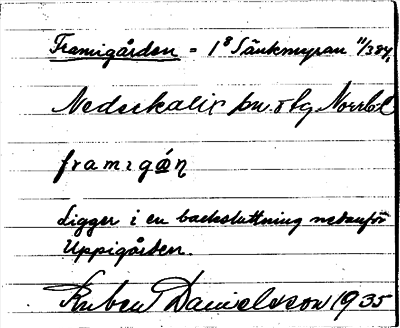 Framigården = 1⁸ Sänkmyran 11/384,
Nederkalix sn. o tg Norrb.l
framıgǻn
Ligger i en backsluttning nedanför
Uppigården.
Ruben Danielsson 1935